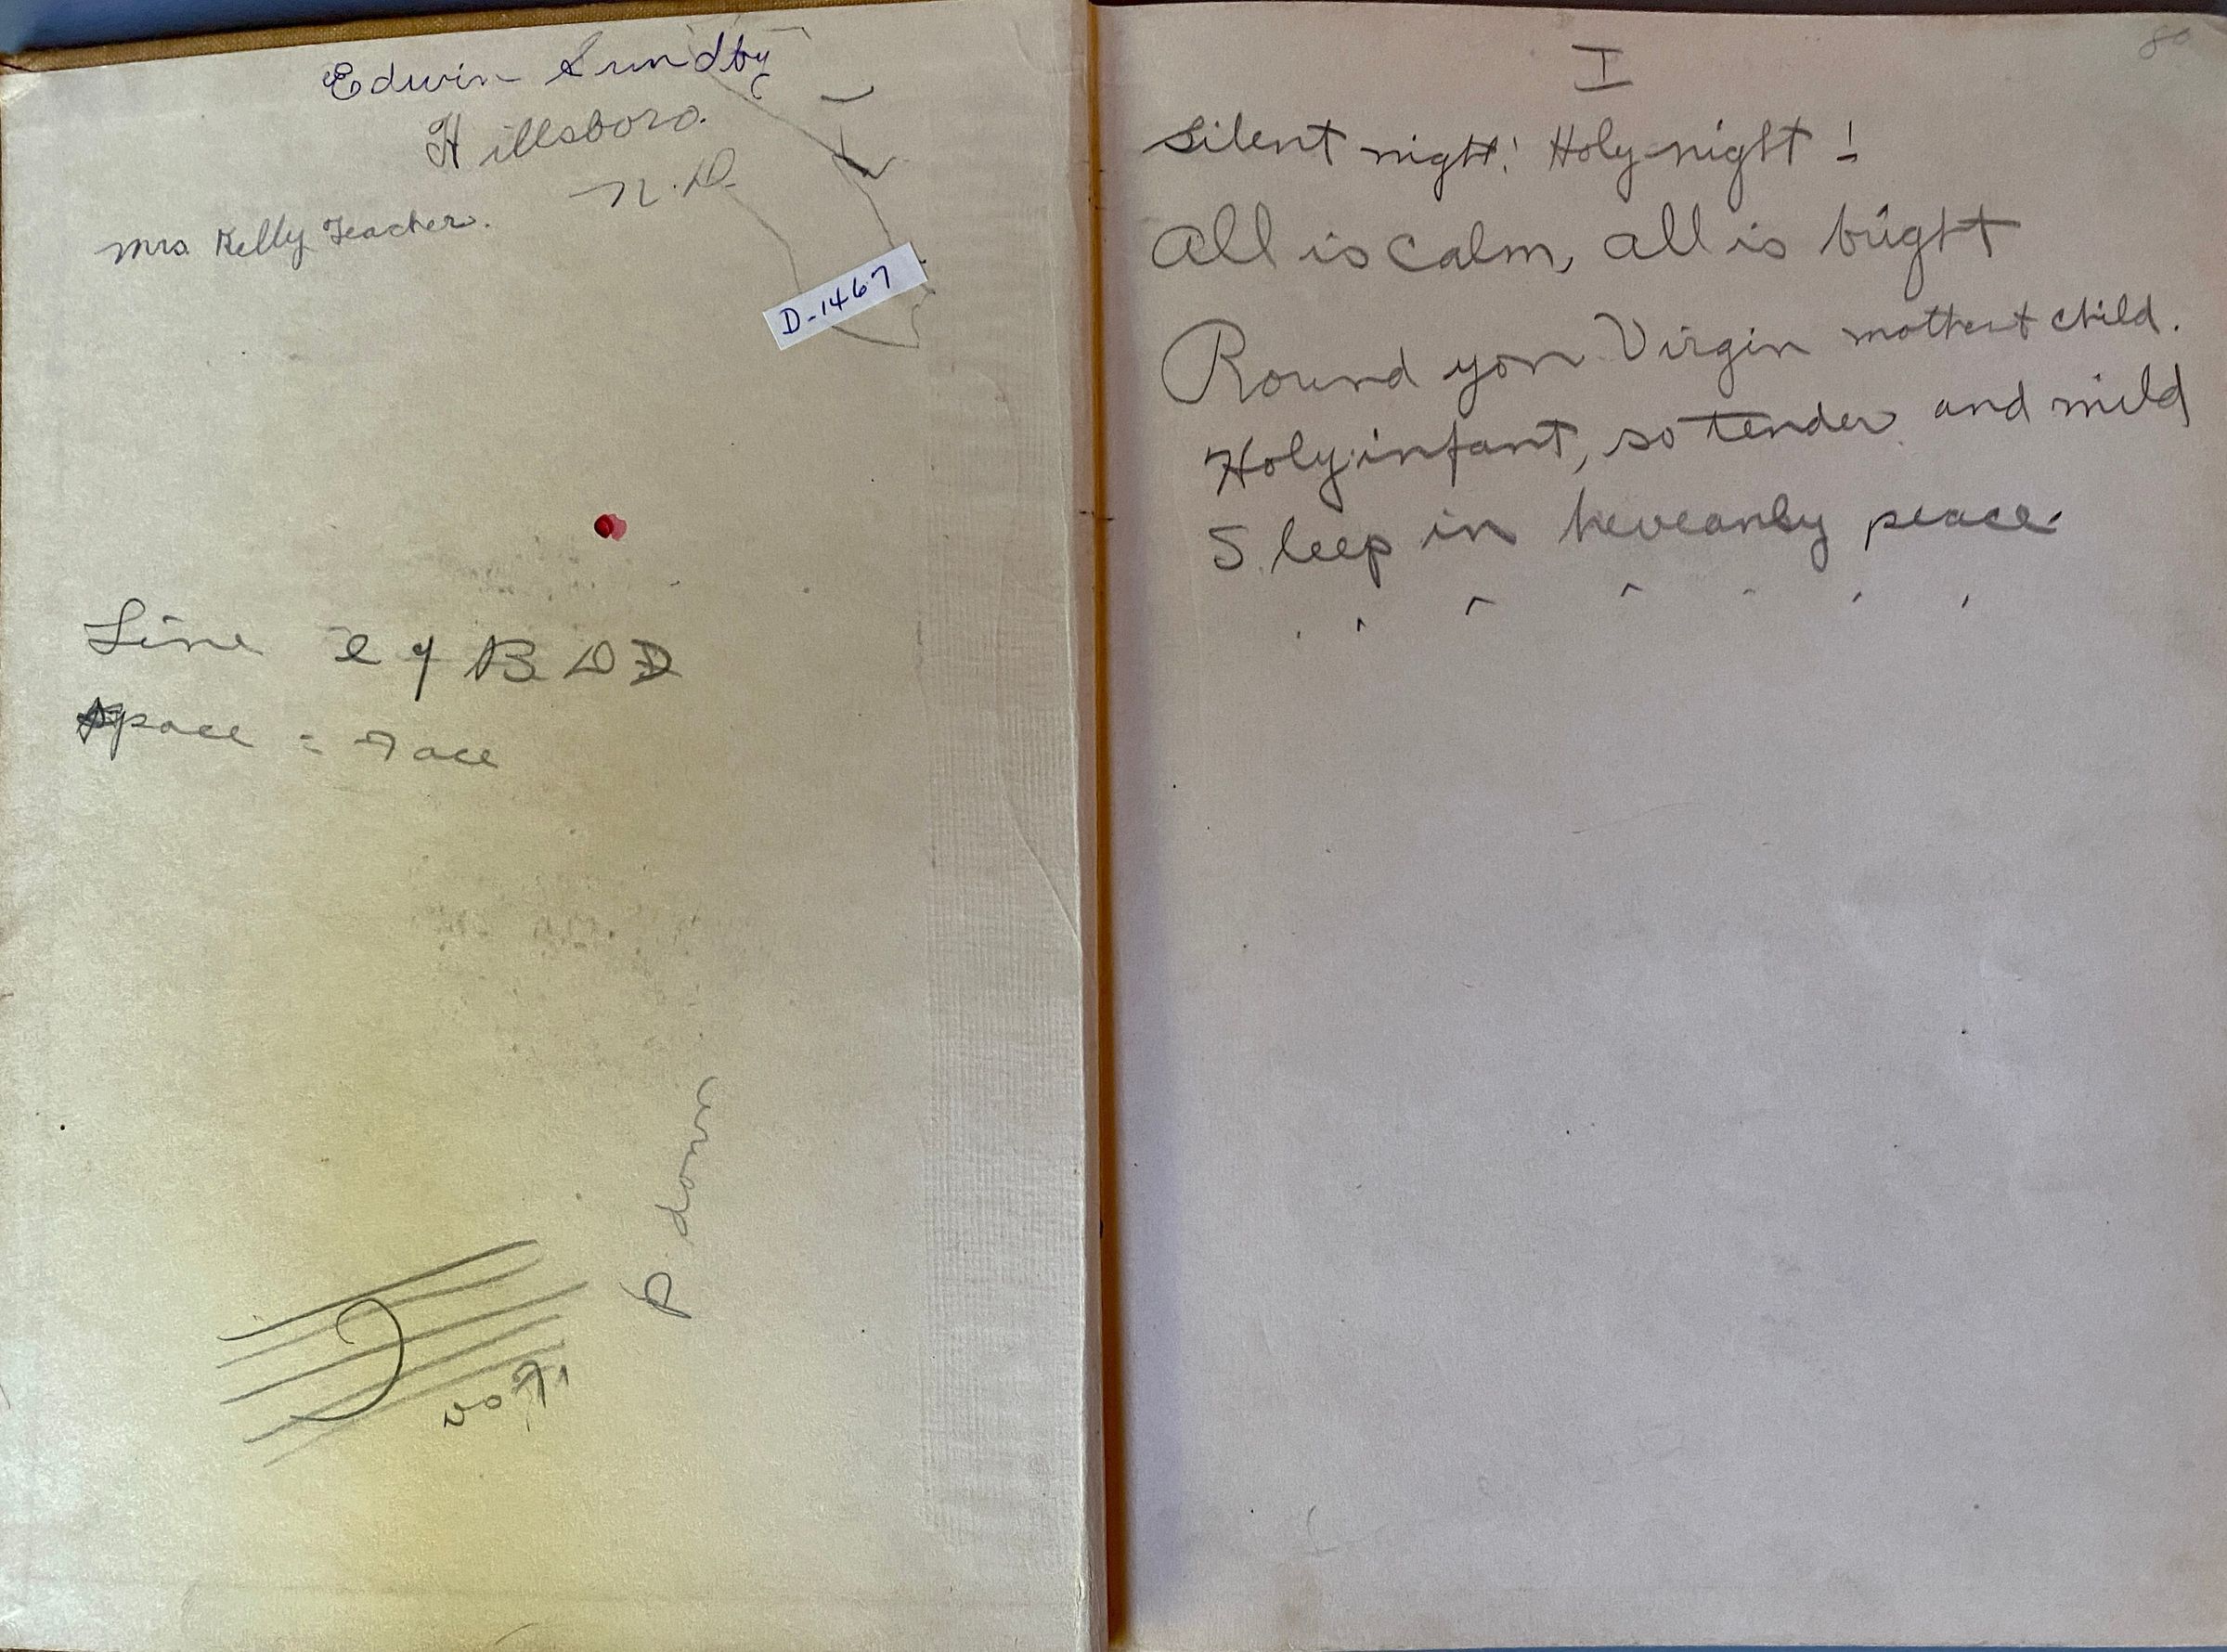 Edwin Sundby
Hillsboro.
N.D.
Mrs. Kelly Teacher.
D-1467
Line
Space = Face
I
Silent night! Holy night!
All is calm, all is bright
Round yon Virgin mother + child.
Holy infant, so tender and mild
Sleep in heveanly peace.
80